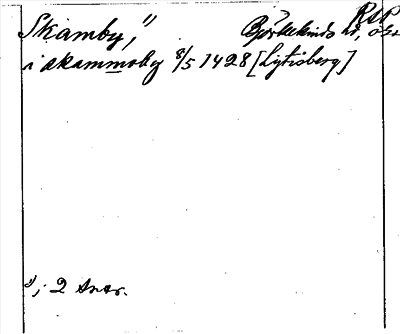 RSP
Skamby,¹⁾ Björkekinds hd, Ög.
i skammoby 8/5 1428 [Lytisberg]
¹⁾; 2 snar.